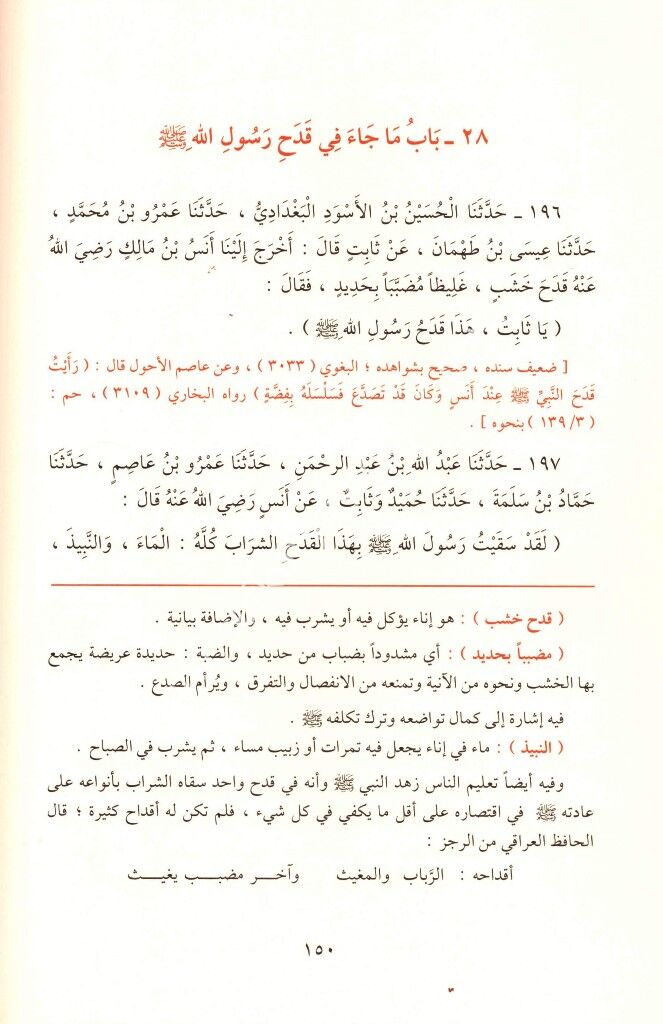 ٢٨ ـ بَابُ مَا جَاءَ فِي قَدَحِ رَسُولِ اللهِ ﷺ
١٩٦ ـ حَدَّثَنَا الْحُسَيْنُ بْنُ الأَسْوَدِ الْبَغْدَادِيُّ ، حَدَّثَنَا عَمْرُو بْنُ مُحَمَّدٍ ،
حَدَّثَنَا عِيسَى بْنُ طَهْمَانَ ، عَنْ ثَابِتٍ قَالَ : أَخْرَجَ إِلَيْنَا أَنَسُ بْنُ مَالِكٍ رَضِيَ اللهُ
عَنْهُ قَدَحَ خَشَبٍ ، غَلِيظاً مُضَبَّبَاً بِحَدِيدٍ ، فَقَالَ :
( يَا ثَابِتُ ، هَذَا قَدَحُ رَسُولِ اللهِ ﷺ ) .
[ ضعيف سنده ، صحيح بشواهده ؛ البغوي ( ٣٠٣٣ ) ، وعن عاصم الأحول قال : ( رَأَيْتُ
قَدَحَ النَّبِيِّ ﷺ عِنْدَ أَنَسٍ وَكَانَ قَدْ تَصَدَّعَ فَسَلْسَلَهُ بِفِضَّةٍ ) رواه البخاري ( ٣١٠٩ ) ، حم :
( ١٣٩/٣ ) بنحوه ] .
١٩٧ ـ حَدَّثَنَا عَبْدُ اللهِ بْنُ عَبْدِ الرحْمَنِ ، حَدَّثَنَا عَمْرُو بْنُ عَاصِمٍ ، حَدَّثَنَا
حَمَّادُ بْنُ سَلَمَةَ ، حَدَّثَنَا حُمَيْدٌ وَثَابِتٌ ، عَنْ أَنَسٍ رَضِيَ اللهُ عَنْهُ قَالَ :
( لَقَدْ سَقَيْتُ رَسُولَ اللهِ ﷺ بِهَذَا الْقَدَحِ الشرَابَ كُلَّهُ : الْمَاءَ ، وَالنَّبِيذَ ،
( قدح خشب ) : هو إناء يؤكل فيه أو يشرب فيه ، والإضافة بيانية .
( مضبباً بحديد ) : أي مشدوداً بضباب من حديد ، والضبة : حديدة عريضة يجمع
بها الخشب ونحوه من الآنية وتمنعه من الانفصال والتفرق ، ويُرأم الصدع .
فيه إشارة إلى كمال تواضعه وترك تكلفه ﷺ .
( النبيذ ) : ماء في إناء يجعل فيه تمرات أو زبيب مساء ، ثم يشرب في الصباح .
وفيه أيضاً تعليم الناس زهد النبي ﷺ وأنه في قدح واحد سقاه الشراب بأنواعه على
عادته ﷺ في اقتصاره على أقل ما يكفي في كل شيء ، فلم تكن له أقداح كثيرة ؛ قال
الحافظ العراقي من الرجز :
أقداحه : الرَّباب والمغيث وآخـــر مضبــب يغيــث
١٥٠